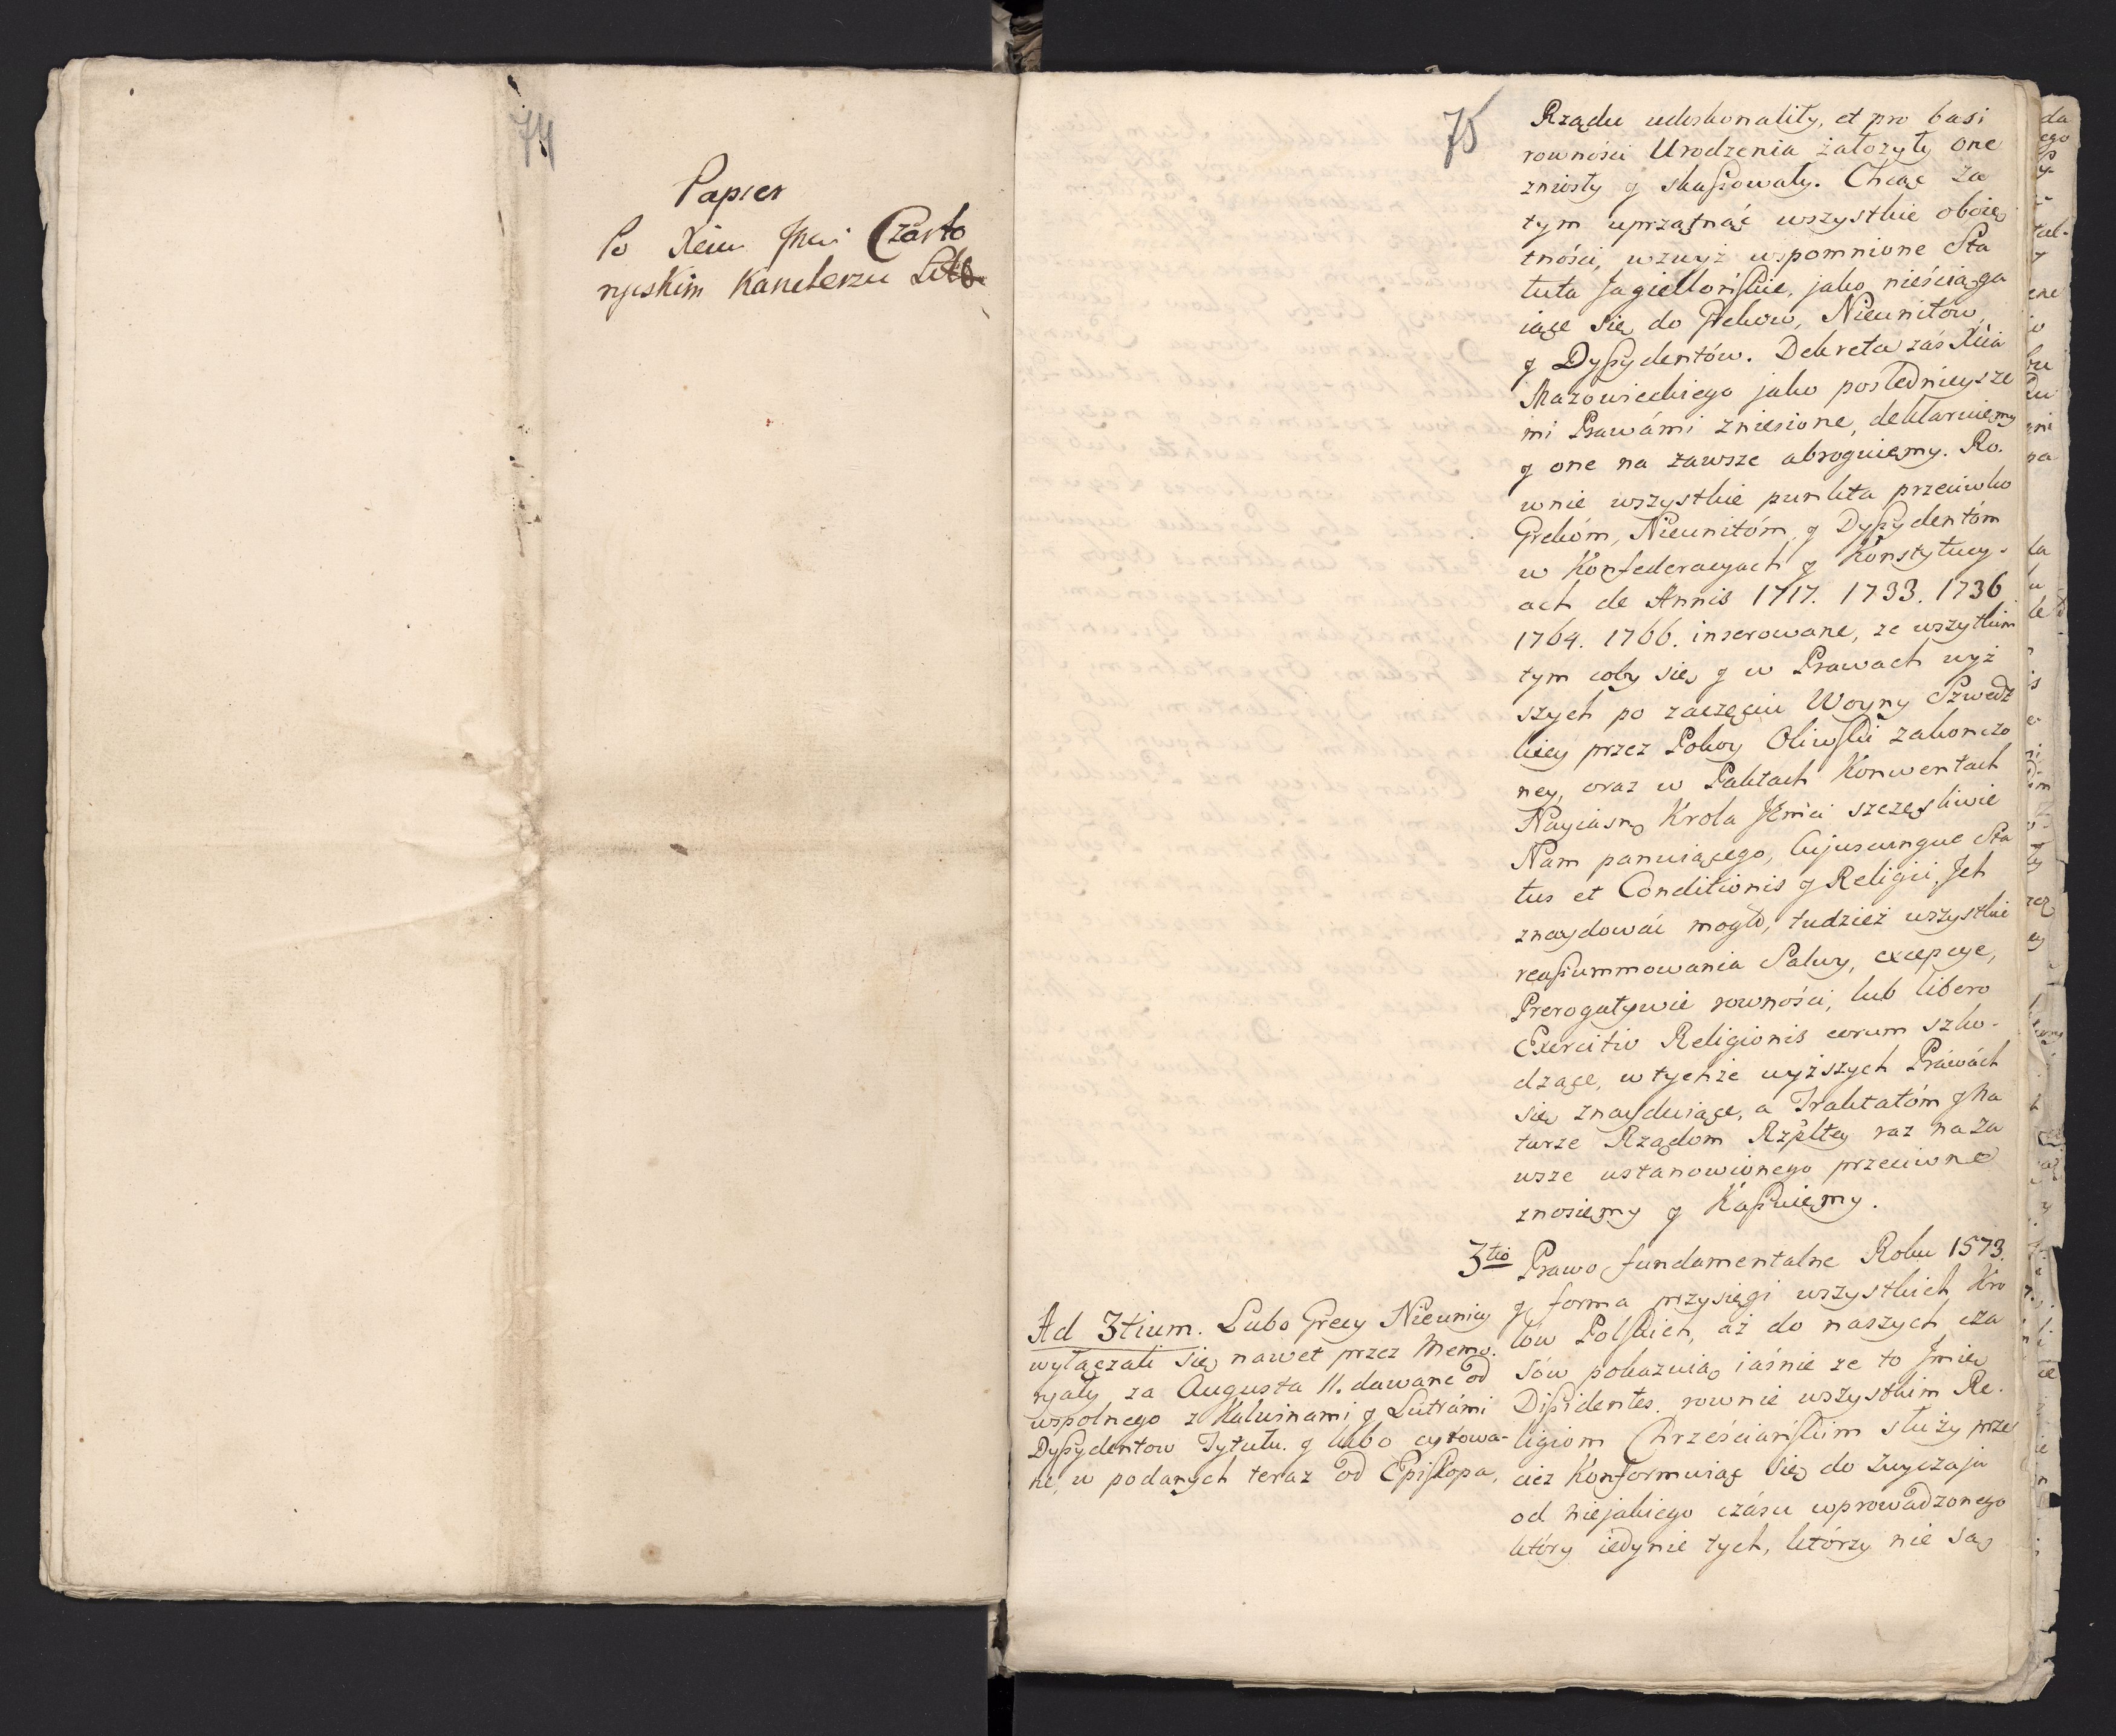 74
Papier
Po Xciu Jmci Czarto
ryskim Kanclerzu Litt
75
Rządu udoskonality, et pro basi
rowności Urodzenia załozyły one
zniosły y skaſsowały. Chcąc za
tym uprzątnąć wszystkie oboię
tności, wzwyż wspomnione Sta
tuta Jagiellońskie, jako nieściąga
iące się do Grekow, Nieunitow,
y Dyſsydentów. Dekreta zás Xcia
Mazowieckiego jako poslednieysze
mi Prawámi zniesione, deklaruięmy
y one na zawsze abroguięmy. Ro.
wnie wszystkie punkta przeciwko
Grekóm, Nieunitóm, y Dyſsydentóm
w Konfederacyach y Konstytucy-
ach de Annis 1717. 1733. 1736
1764. 1766. inserowane, ze wszytkim
tym coby się y w Prawach wyż
szych po zaczęciu Woyny Szwedz
kiey przez Pokoy Oliwski zakonczo
ney, oraz w Paktach Konwentach
Nayiasnº Krola Jmci szczęsliwie
Nam panuiącego, Cujuscunque Sta
tus et Conditionis y Religii, Jch
znaydować mogło, tudzież wszystkie
reaſsummowania Salwy, excepcye,
Prerogatywie rowności, lub libero
Exercitio Religionis eorum szko-
dzące, w tychże wyższych Prawách
się znayduiące, a Traktatóm y Na
turze Rządom Rzpltey raz na za
wsze ustanowionego przeciwne
znosięmy y Kaſsuięmy.
3tio Prawo fundamentalne Roku 1573.
y forma przysięgi wszystkich Kro
low Polskich, aż do naszych cza
sów pokazuią iaśnie ze to Jmie
Diſsidentes rownie wszystkim Re.
ligiom Chrześciańskim służy prze
ciez Konformuiąc się do Zwyczaju
od niejakiego czásu wprowadzonego
który iedynie tych, którzy nie są
Ad 3tium. Lubo Grecy Nieunici
wyłączali się nawet przez Memo.
ryały za Augusta II. dawane od
wspolnego z Kalwinami y Lutrámi
Dyſsydentow Tytułu. y lubo cytowa-
ne, w podanych teraz od Episkopa,